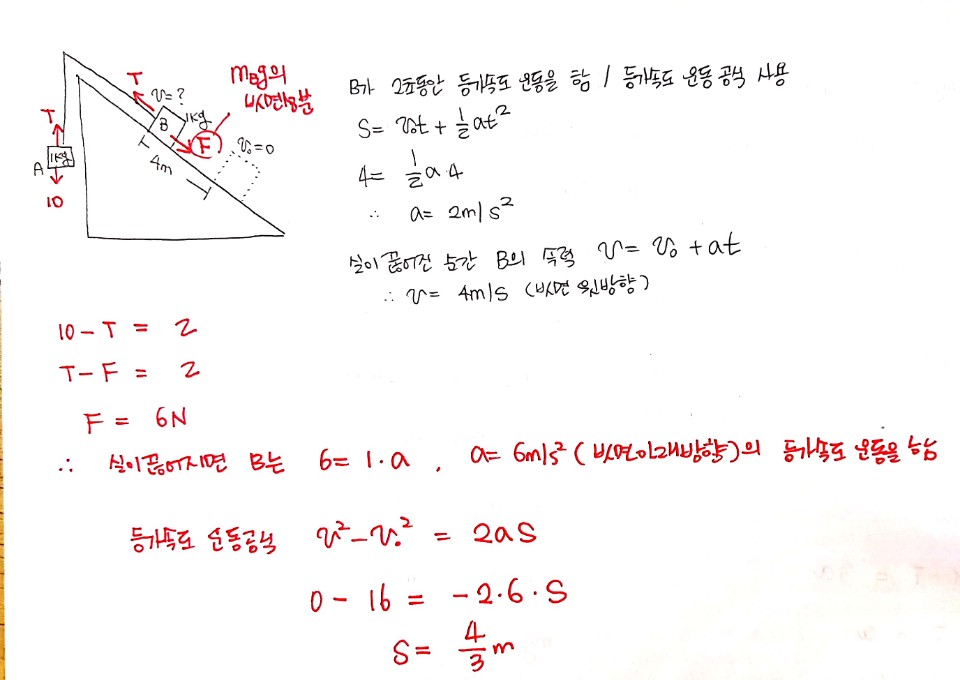 B가 2초동안 등가속도 운동을 함 / 등가속도 운동 공식 사용
S = v₀t + ½at²
4 = ½a·4
∴ a = 2m/s²
실이 끊어진 순간 B의 속력 v = v₀ + at
∴ v = 4m/s (빗면 윗방향)
mBg의
빗면성분
T
v = ?
B
1kg
F
v₀ = 0
4m
T
1kg
A
10
10 - T = 2
T - F = 2
F = 6N
∴ 실이끊어지면 B는 6 = 1·a , a = 6m/s² (빗면아래방향)의 등가속도 운동을 함
등가속도 운동공식 v² - v₀² = 2aS
0 - 16 = -2·6·S
S = 4/3 m